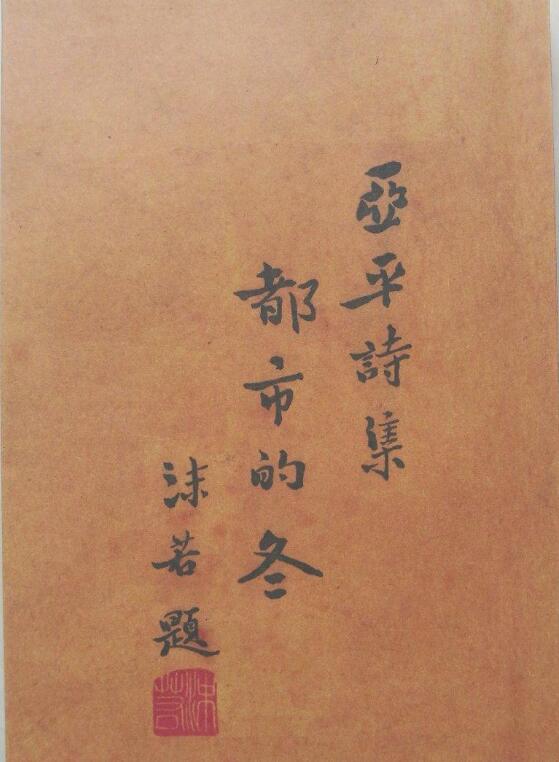 亞平詩集
都市的冬
沫若題
沫若